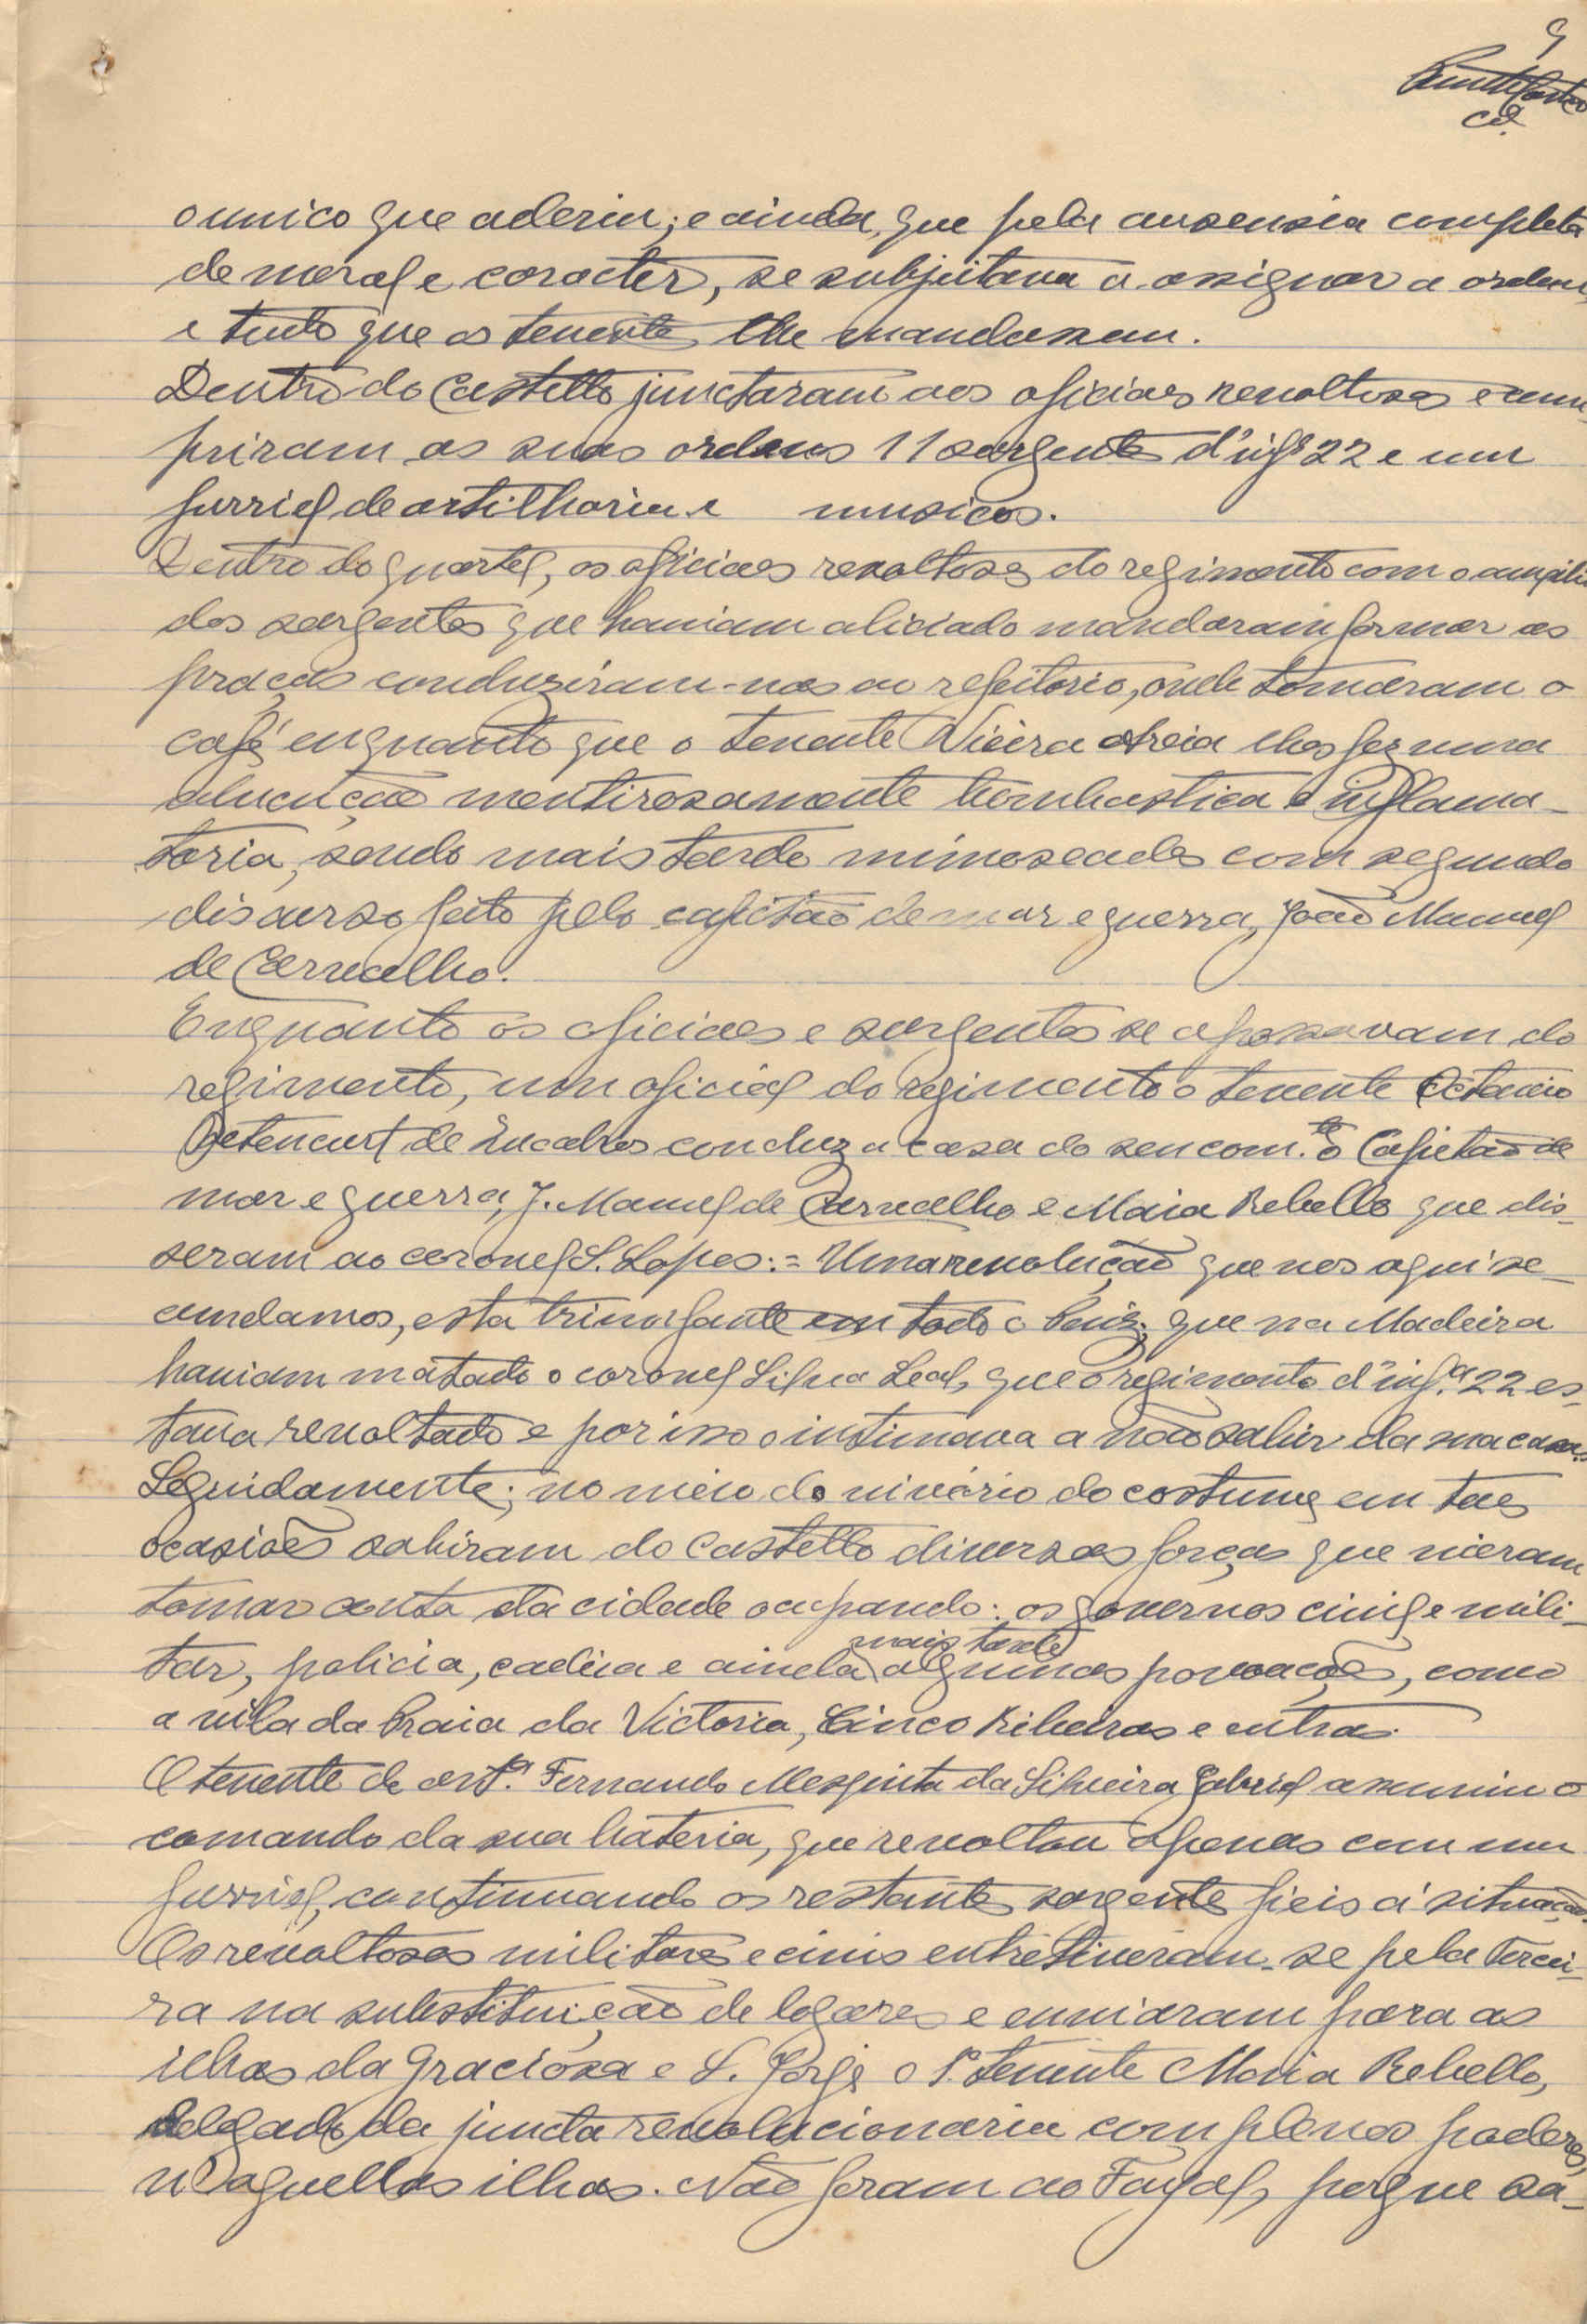 9
cã
o unico que aderiu; e ainda, que pela ausensia completa
de moral e caracter, se subjeitava a assignar a ordem
e tudo que os tenentes lhe mandassem.
Dentro do Castello junctaram aos oficiaes revoltosos e cum-
priram as suas ordens 11 sargentos d'infª 22 e um
furriel de artilharia e musicos.
Dentro do quartel, os oficiaes revoltosos do regimento com o auxilio
dos sargentos que haviam aliciado mandaram formar as
praças conduziram-nas ao refeitorio, onde tomaram o
café enquanto que o tenente Vieira Areia lhes fez uma
alucução mentirosamente bombastica e inflama-
toria, sendo mais tarde mimoseados com segundo
discurso feito pelo capitão de mar e guerra, João Manuel
de Carvalho.
Enquanto os oficiaes e sargentos se apossavam do
regimento, um oficial do regimento o tenente Octavio
Betencurt de conduz a casa do seu com.te o Capitão de
mar e guerra, J. Manuel de Carvalho e Maia Rebello que dis-
seram ao coronel S. Lopes: = Uma revolução que nos aqui se-
cundamos, esta triunfante em todo o Paiz; que na Madeira
haviam matado o coronel Silva Leal, que o regimento d'inf.ª 22 es-
tava revoltado e por isso o intimava a não sahir da sua casa.
Seguidamente; no meio do vivório do costume em taes
ocasiões sahiram do Castello diversas forças que vieram
tomar conta da cidade ocupando: os governos civil e mili-
tar, policia, cadeia e ainda mais tarde algumas povoações, como
a vila da Praia da Victoria, Cinco Ribeiras e outras.
O tenente de art.ª Fernando Mesquita da Silveira Gabriel assumiu o
comando da sua bateria, que revoltou apenas com um
furriel, continuando os restantes sargentos fieis á situação.
Os revoltosos militares e civis entretiveram-se pela Tercei-
ra na substituição de logares e enviaram para as
ilhas da Graciosa e S. Jorge o 1º tenente Maia Rebello,
delegado da juncta revolucionaria com plenos poderes,
n'aquellas ilhas. Não foram ao Fayal, porque sa-